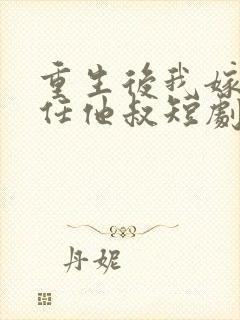 重生後我嫁
任他叔短劇
丹妮